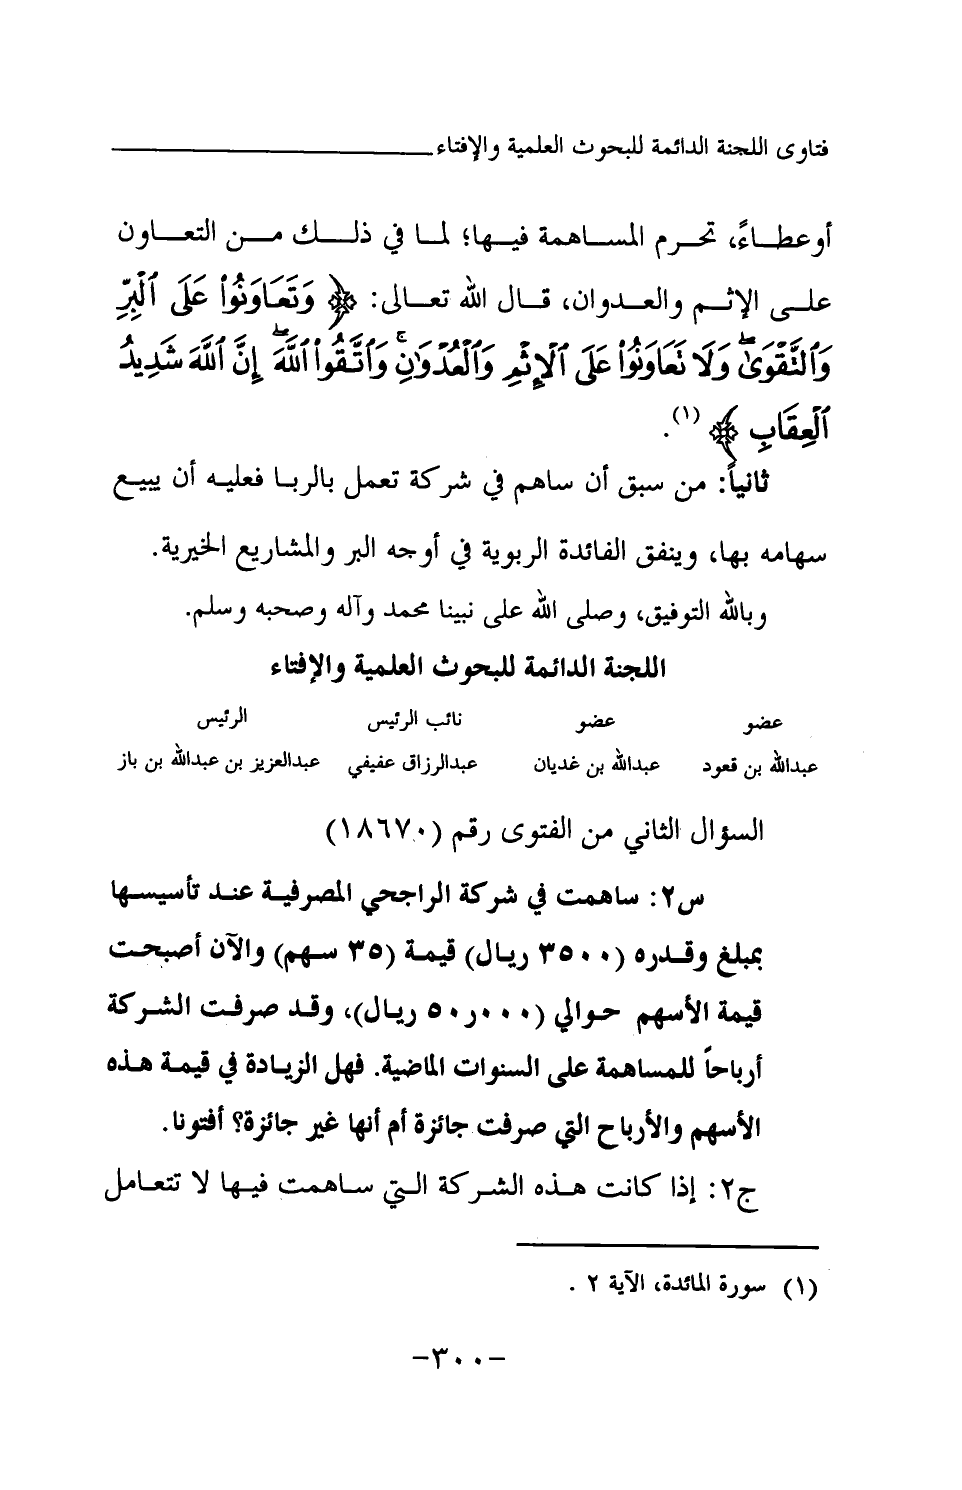 فتاوى اللجنة الدائمة للبحوث العلمية والإفتاء
أو عطاءً، تحرم المساهمة فيها؛ لما في ذلك من التعاون
على الإثم والعدوان، قال الله تعالى: ﴿ وَتَعَاوَنُوا۟ عَلَى ٱلْبِرِّ
وَٱلتَّقْوَىٰ ۖ وَلَا تَعَاوَنُوا۟ عَلَى ٱلْإِثْمِ وَٱلْعُدْوَٰنِ ۚ وَٱتَّقُوا۟ ٱللَّهَ ۖ إِنَّ ٱللَّهَ شَدِيدُ
ٱلْعِقَابِ ﴾ (١).
ثانياً: من سبق أن ساهم في شركة تعمل بالربا فعليه أن يبيع
سهامه بها، وينفق الفائدة الربوية في أوجه البر والمشاريع الخيرية.
وبالله التوفيق، وصلى الله على نبينا محمد وآله وصحبه وسلم.
اللجنة الدائمة للبحوث العلمية والإفتاء
عضو عضو نائب الرئيس الرئيس
عبدالله بن قعود عبدالله بن غديان عبدالرزاق عفيفي عبدالعزيز بن عبدالله بن باز
السؤال الثاني من الفتوى رقم (١٨٦٧٠)
س٢: ساهمت في شركة الراجحي المصرفية عند تأسيسها
بمبلغ وقدره (٣٥٠٠ ريال) قيمة (٣٥ سهم) والآن أصبحت
قيمة الأسهم حوالي (٥٠ر٠٠٠ ريال)، وقد صرفت الشركة
أرباحاً للمساهمة على السنوات الماضية. فهل الزيادة في قيمة هذه
الأسهم والأرباح التي صرفت جائزة أم أنها غير جائزة؟ أفتونا.
ج٢: إذا كانت هذه الشركة التي ساهمت فيها لا تتعامل
(١) سورة المائدة، الآية ٢ .
-٣٠٠-